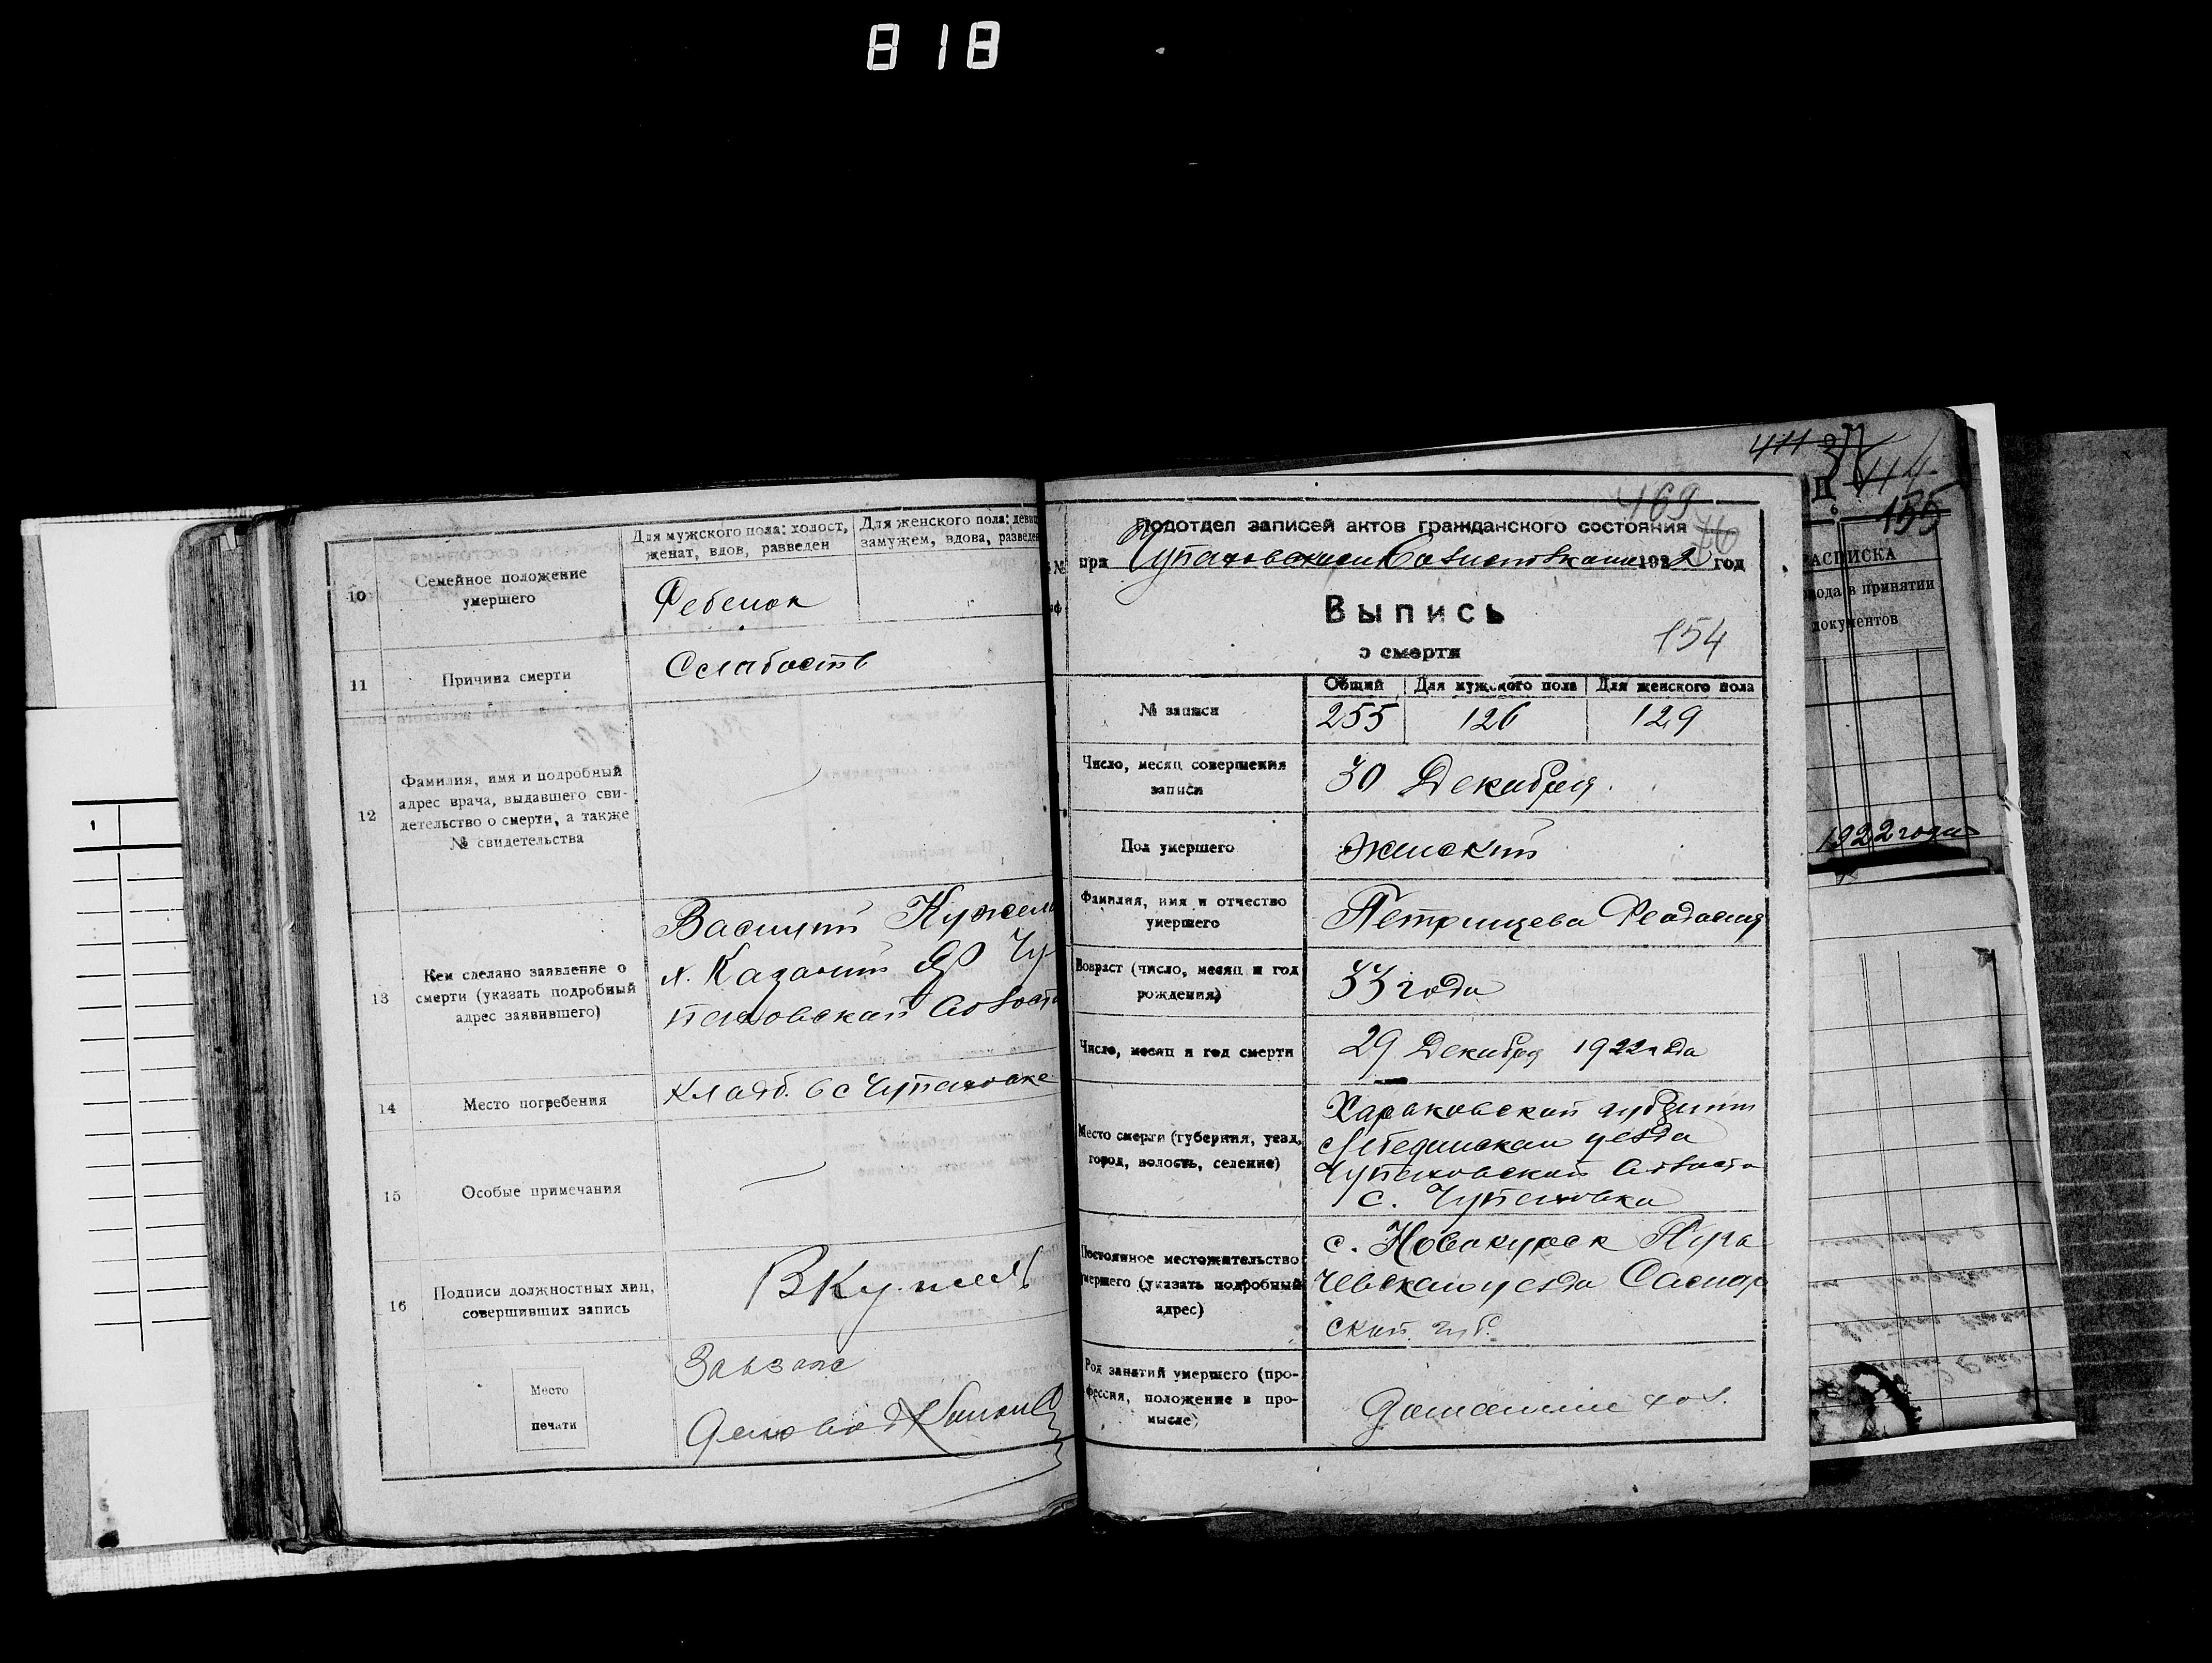 818
10
Семейное положение
умершего
Для мужского пола: холост,
женат, вдов, разведен
Для женского пола: девиц
замужем, вдова, разведен
Ребенок
11
Причина смерти
Слабость
12
Фамилия, имя и подробный
адрес врача, выдавшего сви-
детельство о смерти, а также
№ свидетельства
13
Кем сделано заявление о
смерти (указать подробный
адрес заявившего)
Василий Кужель
х. Казачий Яр Чу-
паховской
14
Место погребения
Кладб. в с Чупаховке
15
Особые примечания
16
Подписи должностных лиц,
совершивших запись
Место
печати
Завзагс
469
76
Подотдел записей актов гражданского состояния
при Чупаховском 1922 год
Выпись
о смерти
154
№ записи
Общий
Для мужского пола
Для женского пола
255
126
129
Число, месяц совершения
записи
30 Декабря
Пол умершего
Женский
Фамилия, имя и отчество
умершего
Петрищева Феодосия
Возраст (число, месяц и год
рождения)
33 года
Число, месяц и год смерти
29 Декабря 1922 года
Место смерти (губерния, уезд,
город, волость, селение)
Харьковской губернии
Лебединскаго уезда
Чупаховской
с. Чупаховка
Постоянное местожительство
умершего (указать подробный
адрес)
с. Новокурск Пуга
чевскаго уезда Самар
ской губ.
Род занятий умершего (про-
фессия, положение в про-
мысле)
Домашние хоз.
411
114
155
РАСПИСКА
вода в принятии
документов
1922 года
1